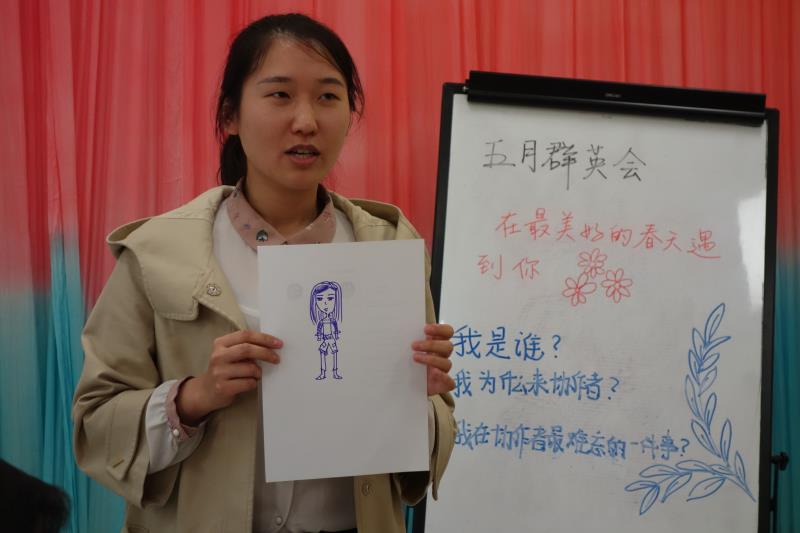 五月群英会
在最美好的春天遇
到你
我是谁?
我为什么来协作者?
我在协作者最难忘的一件事?